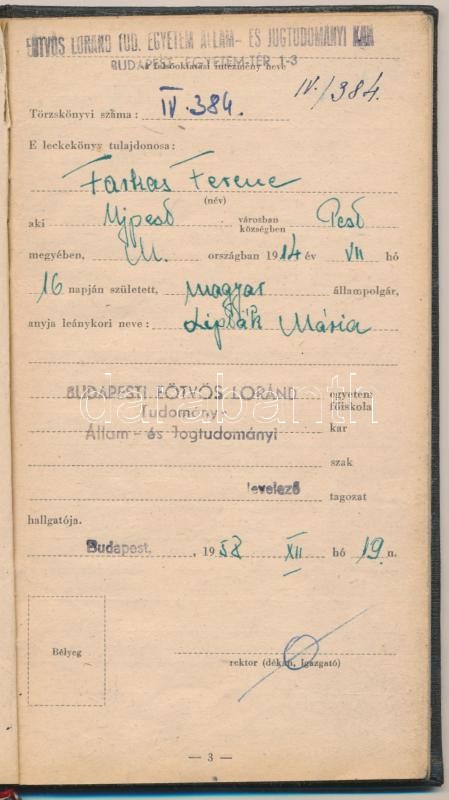 EÖTVÖS LORÁND TUD. EGYETEM ÁLLAM- ÉS JOGTUDOMÁNYI KAR
BUDAPEST, EGYETEM-TÉR 1-3
a felsőoktatási intézmény neve
IV./384.
Törzskönyvi száma: IV.384.
E leckekönyv tulajdonosa:
Farkas Ferenc
(név)
aki Ujpest városban községben Pest
megyében, M. országban 1914 év VII hó
16 napján született, magyar állampolgár,
anyja leánykori neve: Lipták Mária
BUDAPESTI EÖTVÖS LORÁND egyetem
Tudomány- főiskola
Állam- és Jogtudományi kar
szak
levelező tagozat
hallgatója.
Budapest. , 1958 XII hó 19 n.
Bélyeg
rektor (dékán, igazgató)
— 3 —
darabanth